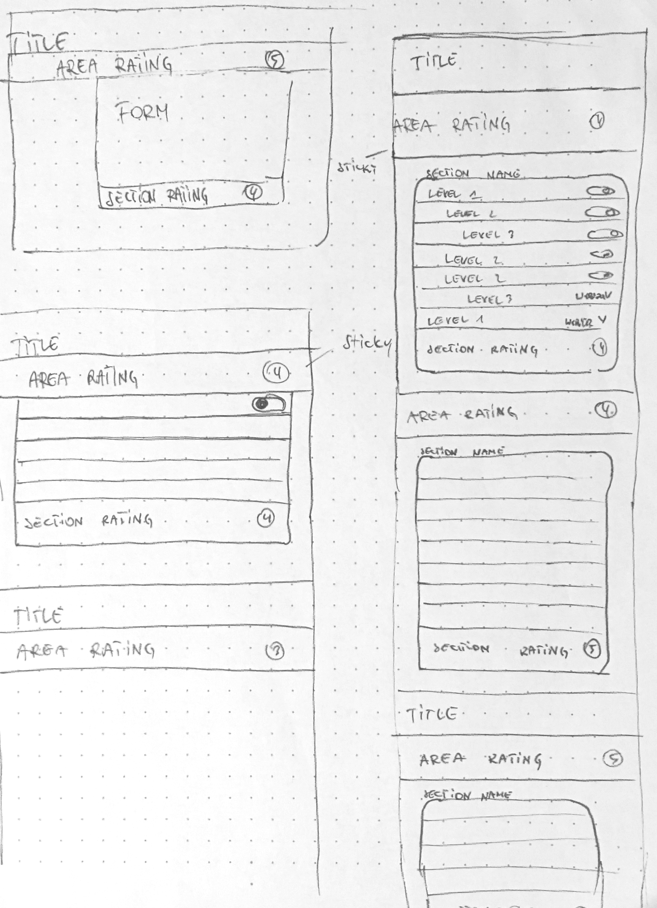 TITLE
AREA RATING 5
FORM
SECTION RATING 4
TITLE
AREA RATING 4
SECTION RATING 4
TITLE
AREA RATING 3
STICKY
Sticky
TITLE
AREA RATING 4
SECTION NAME
LEVEL 1
LEVEL 2
LEVEL 3
LEVEL 2
LEVEL 2
LEVEL 3
LEVEL 1
SECTION RATING 4
AREA RATING 4
SECTION NAME
SECTION RATING 5
TITLE
AREA RATING 5
SECTION NAME